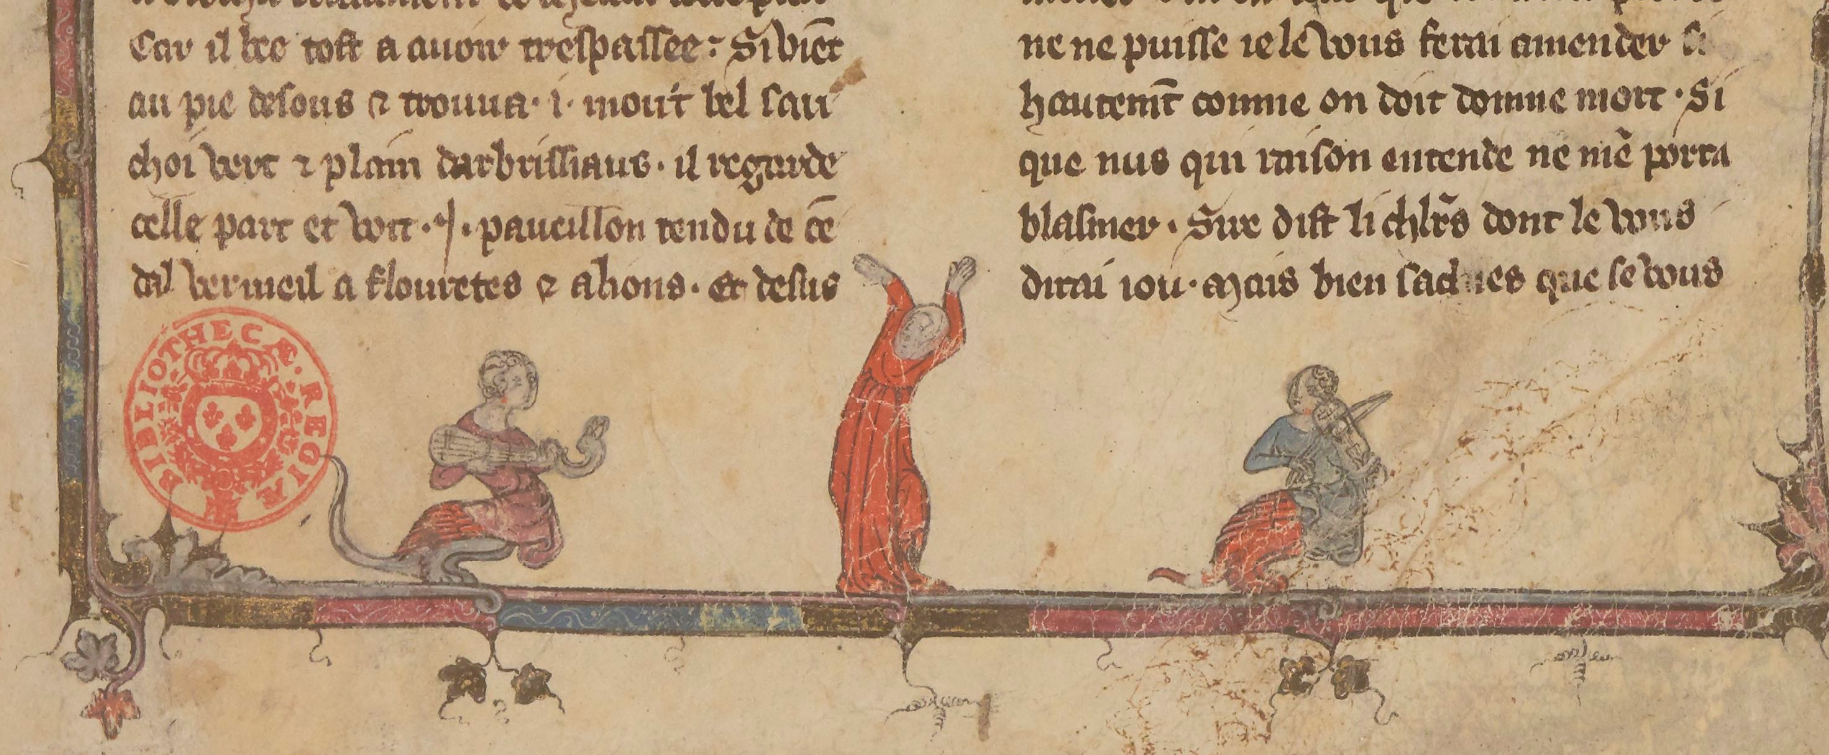 Car il bee tost a auoir trespassee: Si vie̅t
au pie desous ⁊ trouua · i · mou't bel sau
choi vert ⁊ plain darbrissiaus · il regarde
celle part et voit · i · paueillon tendu de ce̅
dal vermeil a flouretes ⁊ a lions · Et desus
ne ne puisse ie le vous ferai amender si
hautem̅t comme on doit domme mort · Si
que nus qui raison entende ne me̅ porra
blasmer · Sire dist li chlr̅s dont le vous
dirai iou · Mais bien sachies que se vous
BIBLIOTHECÆ REGIÆ